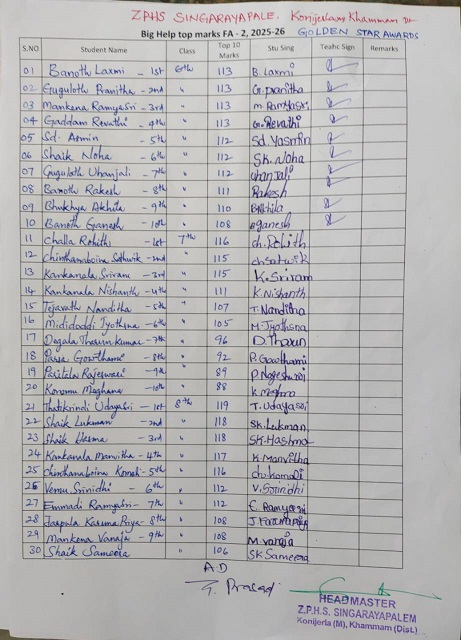 ZPHS SINGARAYAPALE. Konijerla(M) Khammam Dt
Big Help top marks FA - 2, 2025-26 GOLDEN STAR AWARDS
S.NO Student Name Class Top 10 Marks Stu Sing Teahc Sign Remarks
01 Banoth Laxmi - 1st 6th 113 B. Laxmi
02 Guguloth Pranitha - 2nd " 113 G. pranitha
03 Mankena RamyaSri - 3rd " 113 m. RamyaSri
04 Gaddam Revathi - 4th " 113 G. Revathi
05 Sd. - 5th " 112 Sd. Yasmin
06 Shaik Noha - 6th " 112 SK. Noha
07 Guguloth - 7th " 112
08 Banoth Rakesh - 8th " 111 Rakesh
09 Bhukhya Akhila - 9th " 110 B Akhila
10 Banoth Ganesh - 10th " 108 B ganesh
11 Challa Rohith - 1st 7th 116 ch. Rohith
12 Chinthanaboina Sathwik - 2nd " 115 ch satwik
13 Kankanala Sriram - 3rd " 115 K. Sriram
14 Kankanala Nishanth - 4th " 111 K. Nishanth
15 Tejavath Nanditha - 5th " 107 T. Nanditha
16 Mididoddi Jyothsna - 6th " 105 M. Jyothsna
17 Degala Tharun kumar - 7th " 96 D. Tharun
18 Passa Gowthami - 8th " 92 P. Gowthami
19 Paritala Rajeswari - 9th " 89 P. Rajeshwari
20 Koromu Meghana - 10th " 88 K Meghana
21 Thatikrindi Udayasri - 1st 8th 119 T. Udayasri
22 Shaik Lukman - 2nd " 118 SK. Lukman,
23 Shaik Hasma - 3rd " 118 SK. Hashma
24 Kankanala Manvitha - 4th " 117 K Manvitha
25 Chinthanaboina Komali - 5th " 116 ch. komali
26 Vemu Srinidhi - 6th " 112 V. Srinidhi
27 Emmadi Ramyasri - 7th " 112 E. Ramyasri
28 Jaspula - 8th " 108
29 Mankena Vanaja - 9th " 108 M. vanaja
30 Shaik Sameera " 106 SK Sameera
A.D
Prasad
HEADMASTER
Z.P.H.S. SINGARAYAPALEM
Konijerla (M), Khammam (Dist.)